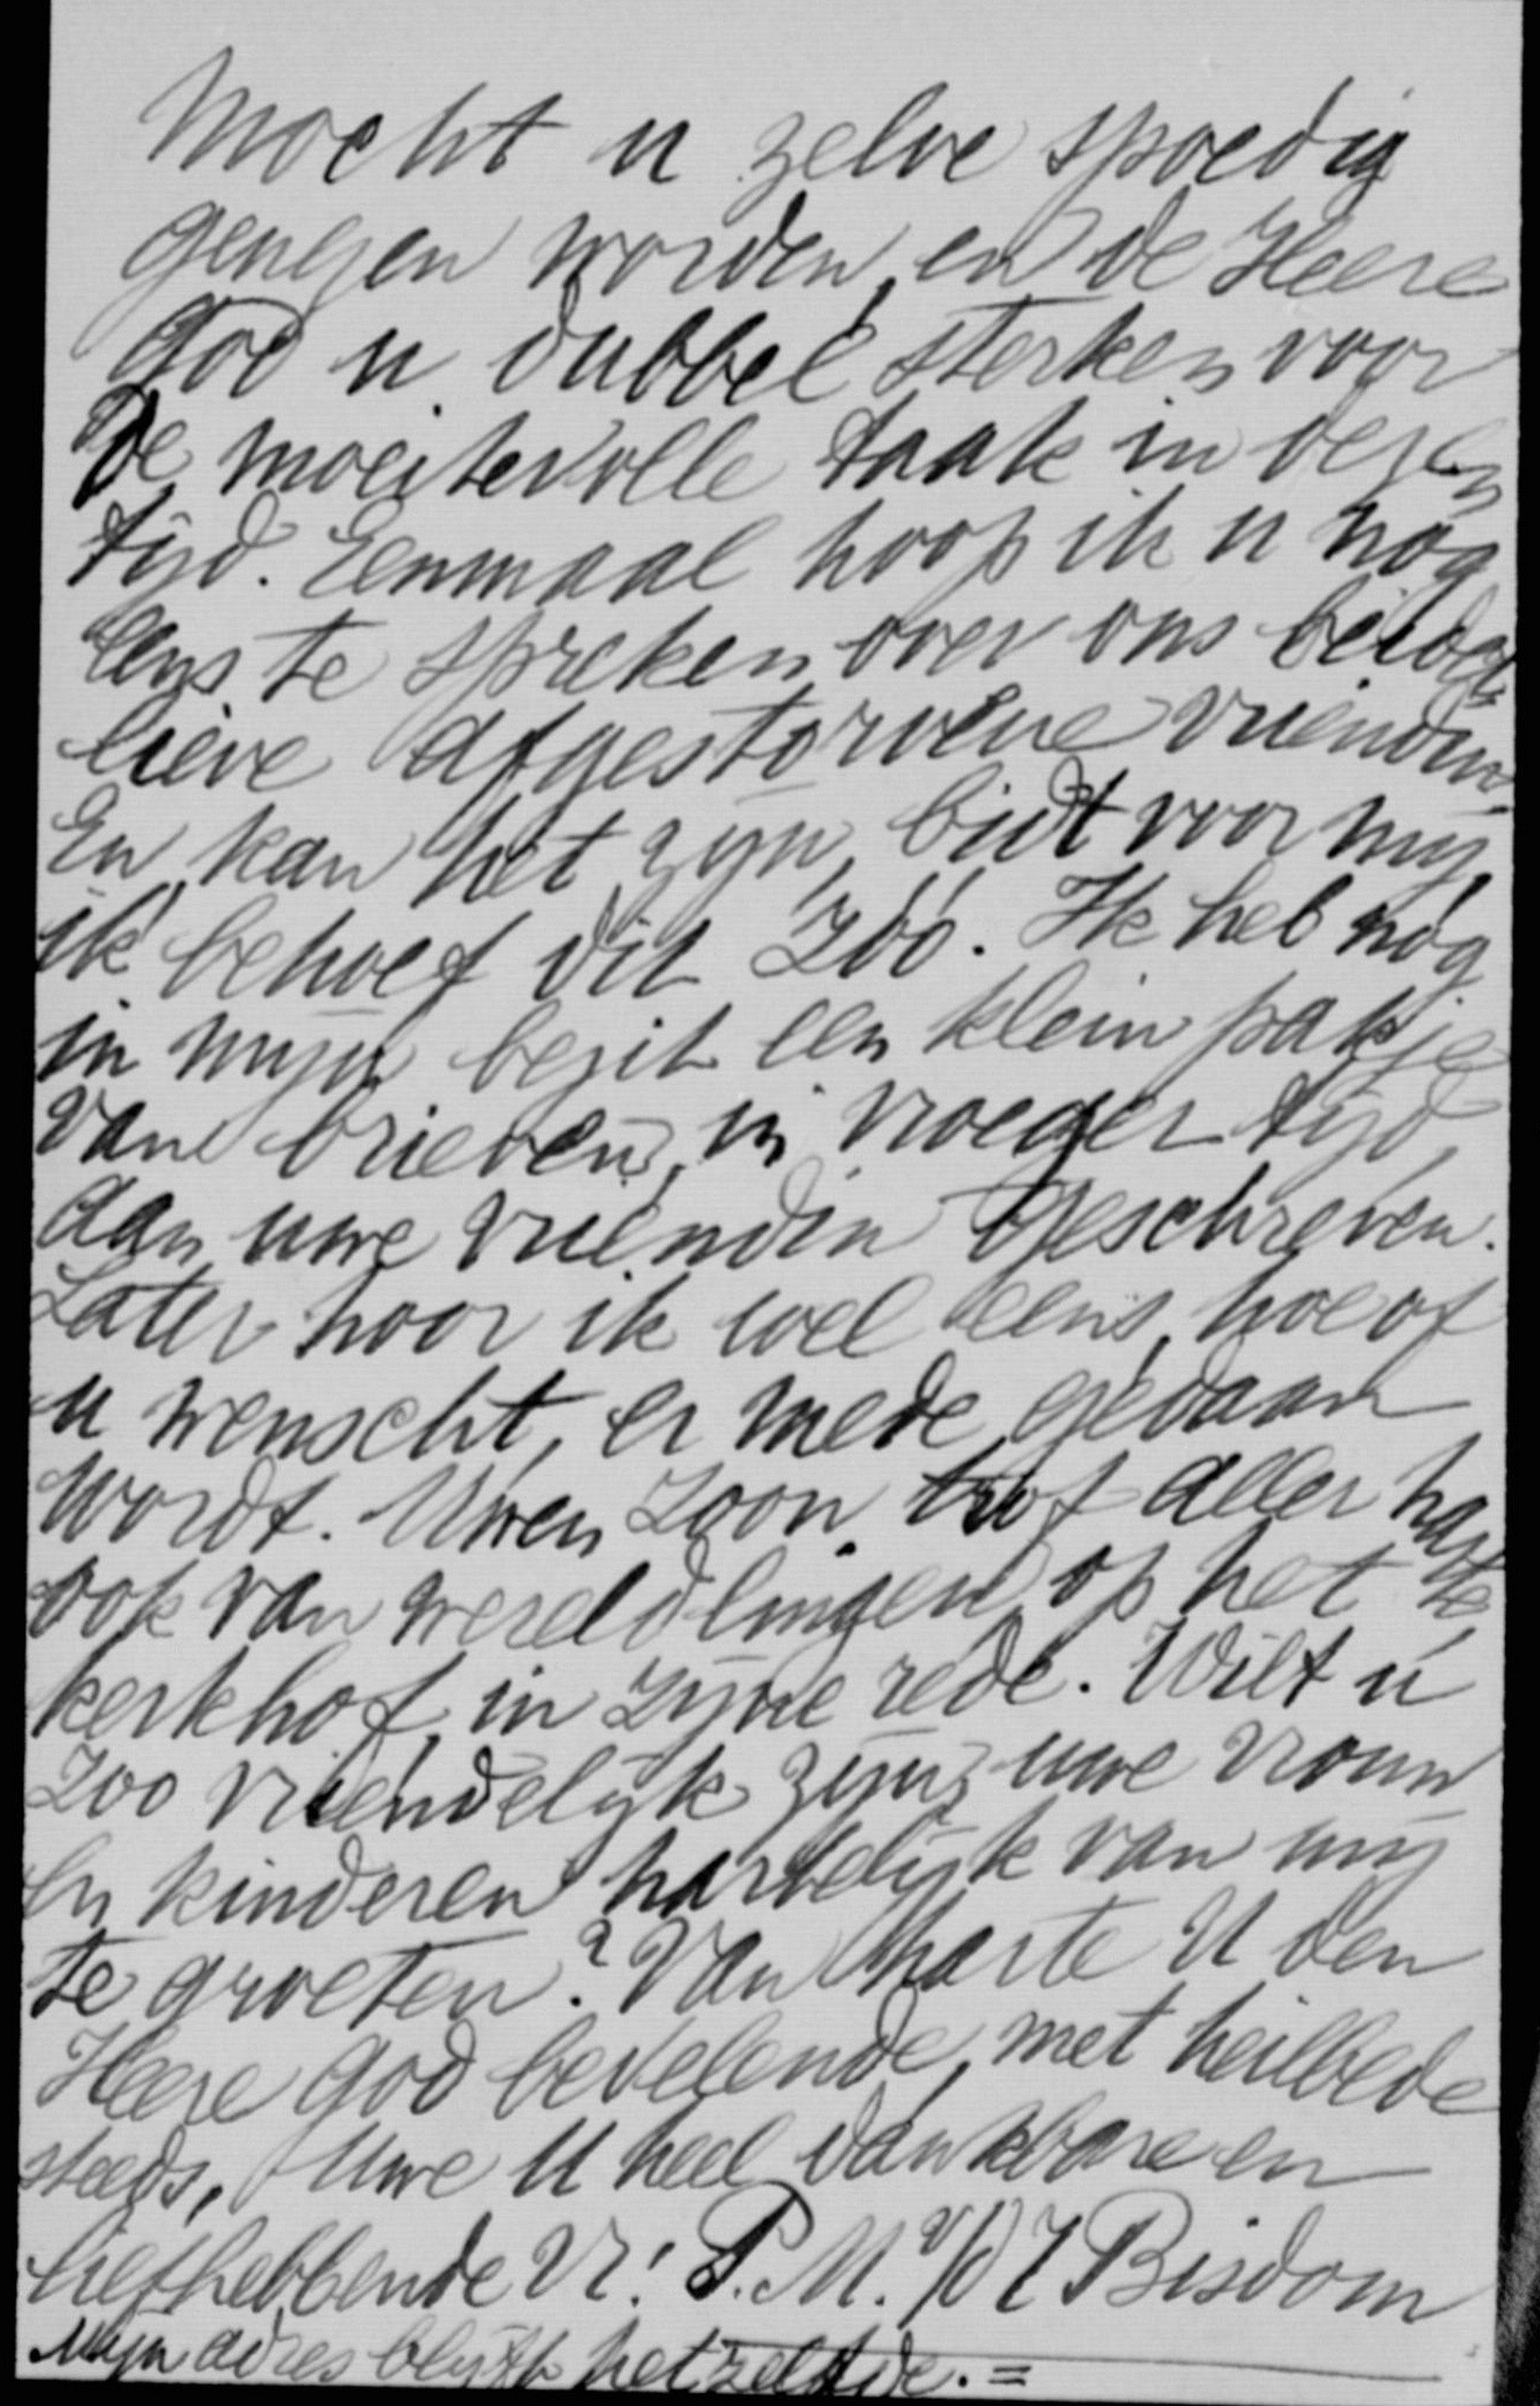 Mocht u zelve spoedig
genezen worden, en de Heere
God u dubbel sterken voor
de moeitevolle taak in dezen
tijd. Eenmaal hoop ik u nog
eens te spreken over ons beider
lieve afgestorvene vriendin.
En kan het zijn, bidt voor mij,
ik behoef dit zóó. Ik heb nóg
in mijn bezit een klein pakje
van brieven, in vroeger tijd,
aan uwe vriendin geschreven.
Later hoor ik wel eens, hoe of
u wenscht, er mede gedaan
wordt. Uwen Zoon trof aller harte
ook van wereldlingen op het
kerkhof, in zijne rede. Wilt u
zoo vriendelijk zijn, uwe vrouw
en kinderen hartelijk van mij
te groeten? Van harte U den
Heere God bevelende, met heilbede
steeds, Uwe U heel dankbare en
liefhebbende Vr: P. M. Bisdom
Mijn adres blijft hetzelfde. =